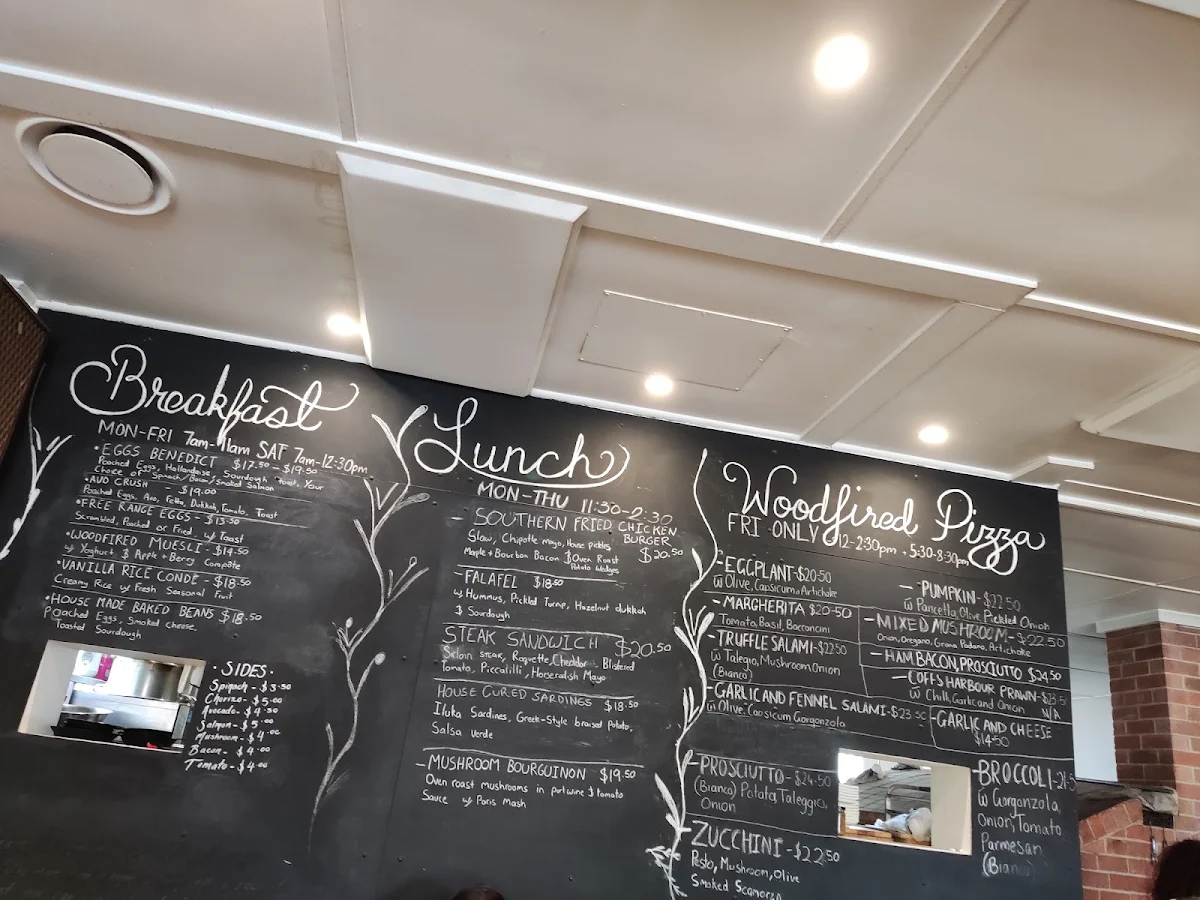 Breakfast
MON-FRI 7am-11am SAT 7am-12:30pm
• EGGS BENEDICT $17.50 - $19.50
Poached Eggs, Hollandaise, Sourdough Toast, Your
Choice of Spinach/Bacon/Smoked Salmon
• AVO CRUSH $19.00
Poached Eggs, Avo, Fetta, Dukkah, Tomato, Toast
• FREE RANGE EGGS - $13.50
Scrambled, Poached or Fried, w/ Toast
• WOODFIRED MUESLI - $14.50
w/ Yoghurt & Apple + Berry Compote
• VANILLA RICE CONDE - $18.50
Creamy Rice w/ Fresh Seasonal Fruit
• HOUSE MADE BAKED BEANS $18.50
Poached Eggs, Smoked cheese,
Toasted Sourdough
• SIDES •
Spinach - $3.50
Chorizo - $5.00
Avocado - $4.50
Salmon - $5.00
Mushroom - $4.00
Bacon - $4.00
Tomato - $4.00
Lunch
MON-THU 11:30-2:30
- SOUTHERN FRIED CHICKEN
BURGER
Slaw, Chipotle mayo, House pickles $20.50
Maple + Bourbon Bacon & Oven Roast
Potato Wedges
- FALAFEL $18.50
w/ Hummus, Pickled Turnip, Hazelnut dukkah
& Sourdough
STEAK SANDWICH $20.50
Sirloin STEAK, Roquette, Cheddar, Blistered
Tomato, Piccalilli, Horseradish Mayo
HOUSE CURED SARDINES $18.50
Iluka Sardines, Greek-Style braised potato,
Salsa Verde
- MUSHROOM BOURGUINON $19.50
Oven roast mushrooms in port wine & tomato
Sauce w/ Paris Mash
Woodfired Pizza
FRI ONLY 12-2:30pm + 5:30-8:30pm
- EGGPLANT - $20.50
w Olive, Capsicum & Artichoke
- MARGHERITA $20-50
Tomato, Basil, Bocconcini
- TRUFFLE SALAMI - $22.50
w Talegio, Mushroom, Onion
(Bianca)
- GARLIC AND FENNEL SALAMI - $23.50
w Olive, Capsicum Gorgonzola
- PROSCIUTTO - $24.50
(Bianca) Potato, Taleggio,
Onion
ZUCCHINI - $22.50
Pesto, Mushroom, Olive
Smoked Scamorza
- PUMPKIN - $22.50
w Pancetta, Olive, Pickled Onion
- MIXED MUSHROOM - $22.50
Onion, Oregano, Grana Padano, Artichoke
- HAM, BACON, PROSCIUTTO $24.50
- COFFS HARBOUR PRAWN - $23.5
w Chilli, Garlic and Onion N/A
- GARLIC AND CHEESE
$14.50
- BROCCOLI - 21.5
w Gorgonzola,
Onion, Tomato
Parmesan
(Bianca)